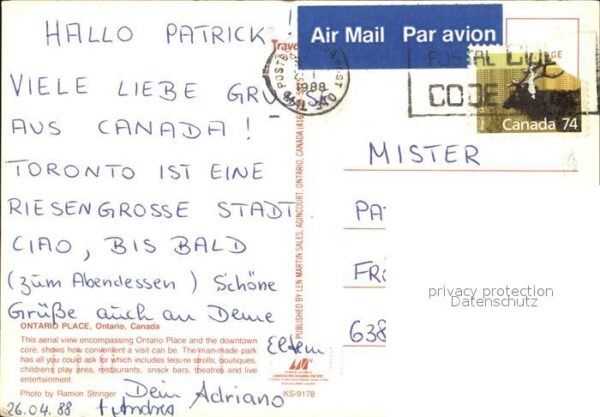 HALLO PATRICK!
VIELE LIEBE GRÜSSE
AUS CANADA!
TORONTO IST EINE
RIESENGROSSE STADT.
CIAO, BIS BALD
(zum Abendessen) Schöne
Grüße auch an Deine
Eltern
Dein Adriano
26.04.88
ONTARIO PLACE, Ontario, Canada
This aerial view encompassing Ontario Place and the downtown
core, shows how convenient a visit can be. The man-made park
has all you could ask for which includes leisure strolls, boutiques,
children's play area, restaurants, snack bars, theatres and live
entertainment.
Photo by Ramon Stringer
KS-9178
PUBLISHED BY LEN MARTIN SALES, AGINCOURT, ONTARIO, CANADA (416)
Air Mail Par avion
1988
POSTAL CODE
CODE
Canada 74
MISTER
PA
FR
638
privacy protection
Datenschutz